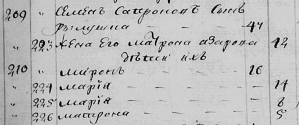 209 Семен Сафронов Сын
рылушка 44
" 223 Жена Его матрона азарова 42
Дети ихъ
210 " миронъ 16
" 224 мария — 14
" 225 мария — 8
" 226 матрона — 5